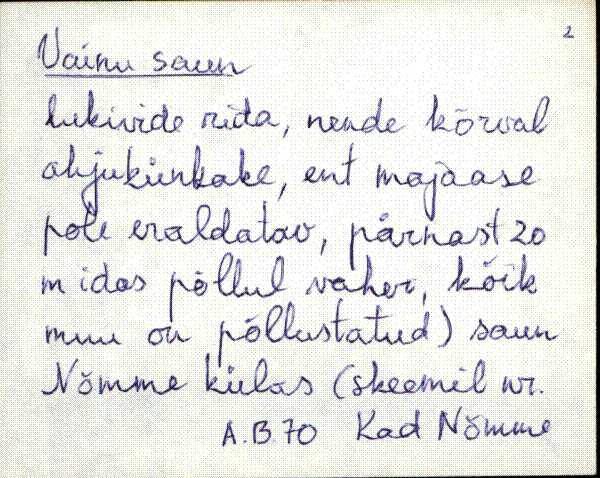 2
Vainu saun
lukivide rida, nende kõrval
ahjukünkake, ent majaase
pole eraldatav, pärnast 20
m idas põllul vaher, kõik
muu on põllustatud) saun
Nõmme külas (skeemil nr.
A.B.70 Kad Nõmme